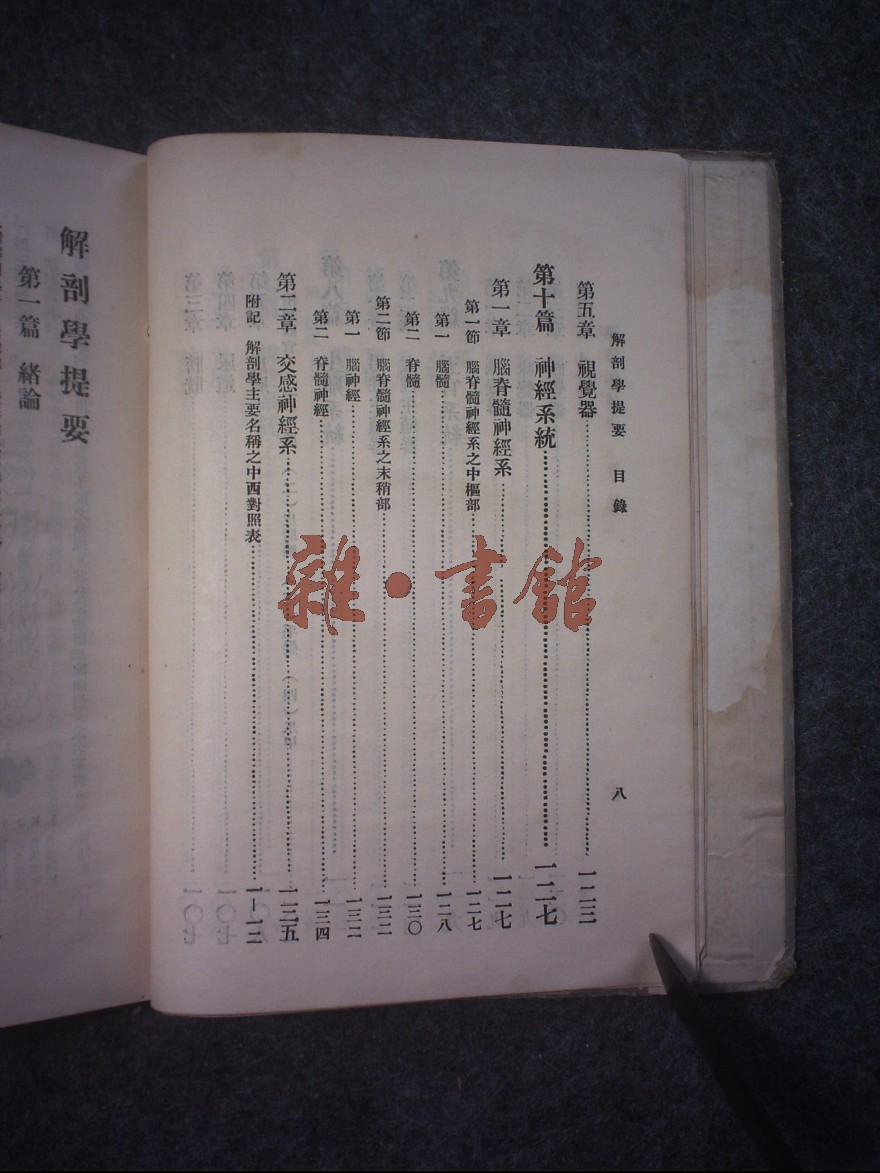 解剖學提要 目錄 八
第五章 視覺器 一二三
第十篇 神經系統 一二七
第一章 腦脊髓神經系 一二七
第一節 腦脊髓神經系之中樞部 一二七
第一 腦髓 一二八
第二 脊髓 一三〇
第二節 腦脊髓神經系之末稍部 一三二
第一 腦神經 一三二
第二 脊髓神經 一三四
第二章 交感神經系 一三五
附記 解剖學主要名稱之中西對照表 一—一二
解剖學提要
第一篇 緒論
雜·書館